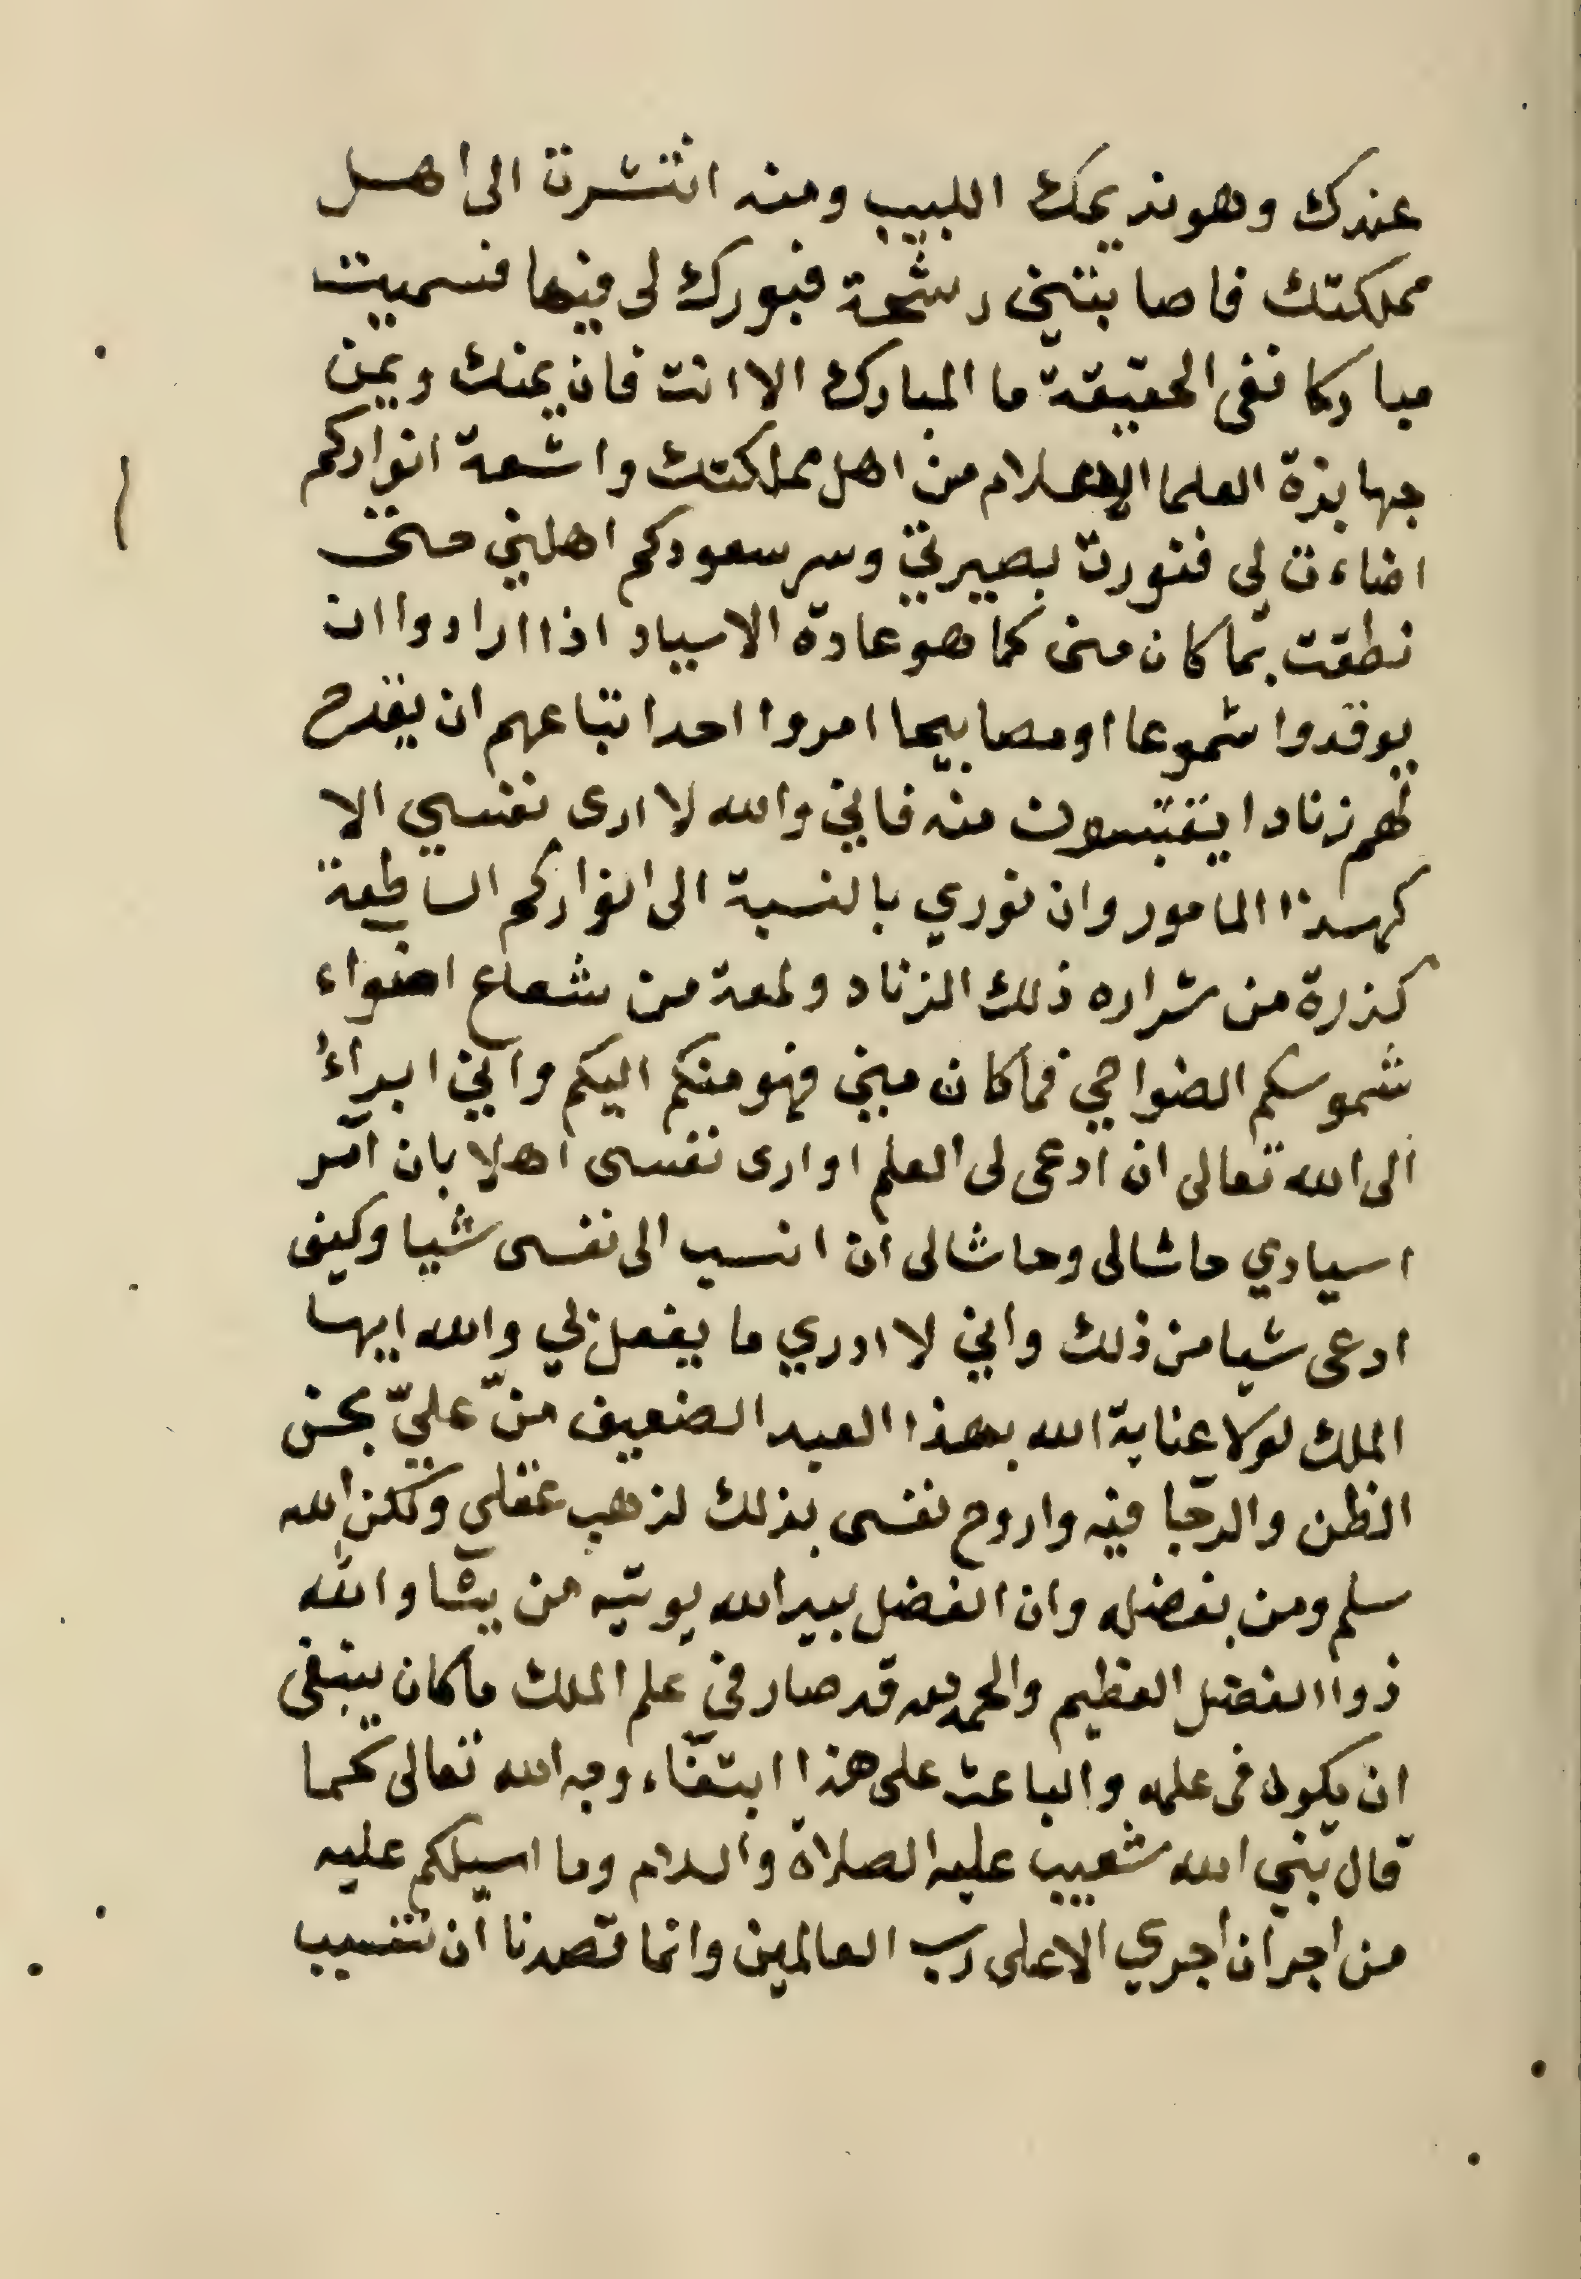 عندك وهو نديمك اللبيب ومنه انتشرت الى اهل
مملكتك فاصابتني رشحة فبورك لى فيها فسميت
مباركا نفى الحقيقة ما المبارك الا انت فان يمنك ويمن
جهابذة العلما الاعلام من اهل مملكتك واشعة انواركم
اضاءت لي فتنورت بصيرتي وسر سعودكم اهلني حتى
نطقت بما كان منى كما هو عادة الاسياد اذا ارادوا ان
يوقدوا شموعا او مصابيحا امروا احد اتباعهم ان يقدح
لهم زنادا يقتبسون منه فاني والله لا ارى نفسي الا
كهذا المامور وان نوري بالنسبة الى انواركم الساطعة
كذرة من شراره ذلك الزناد ولمعة من شعاع اضواء
شموسكم الضواحي فما كان مني فهو منكم اليكم واني ابراء
الى الله تعالى ان ادعى لى العلم او ارى نفسى اهلا بان آمر
اسيادي حاشالى وحاشالى ان انسب الى نفسى شيا وكيف
ادعى شيا من ذلك واني لا ادري ما يفعل بي والله ايها
الملك لولا عناية الله بهذا العبد الضعيف منّ عليّ بحسن
الظن والرجا فيه واروح نفسى بذلك لذهب عقلي ولكن الله
سلم ومن بفضله وان الفضل بيد الله يوتيه من يشا والله
ذوا الفضل العظيم والحمد لله قد صار في علم الملك ما كان ينبغى
ان يكون فى علمه والباعث على هذا ابتغاء وجه الله تعالى كما
قال نبي الله شعيب عليه الصلاة والسلام وما اسيلكم عليه
من اجر ان اجري الا على رب العالمين وانما قصدنا ان نتسبب